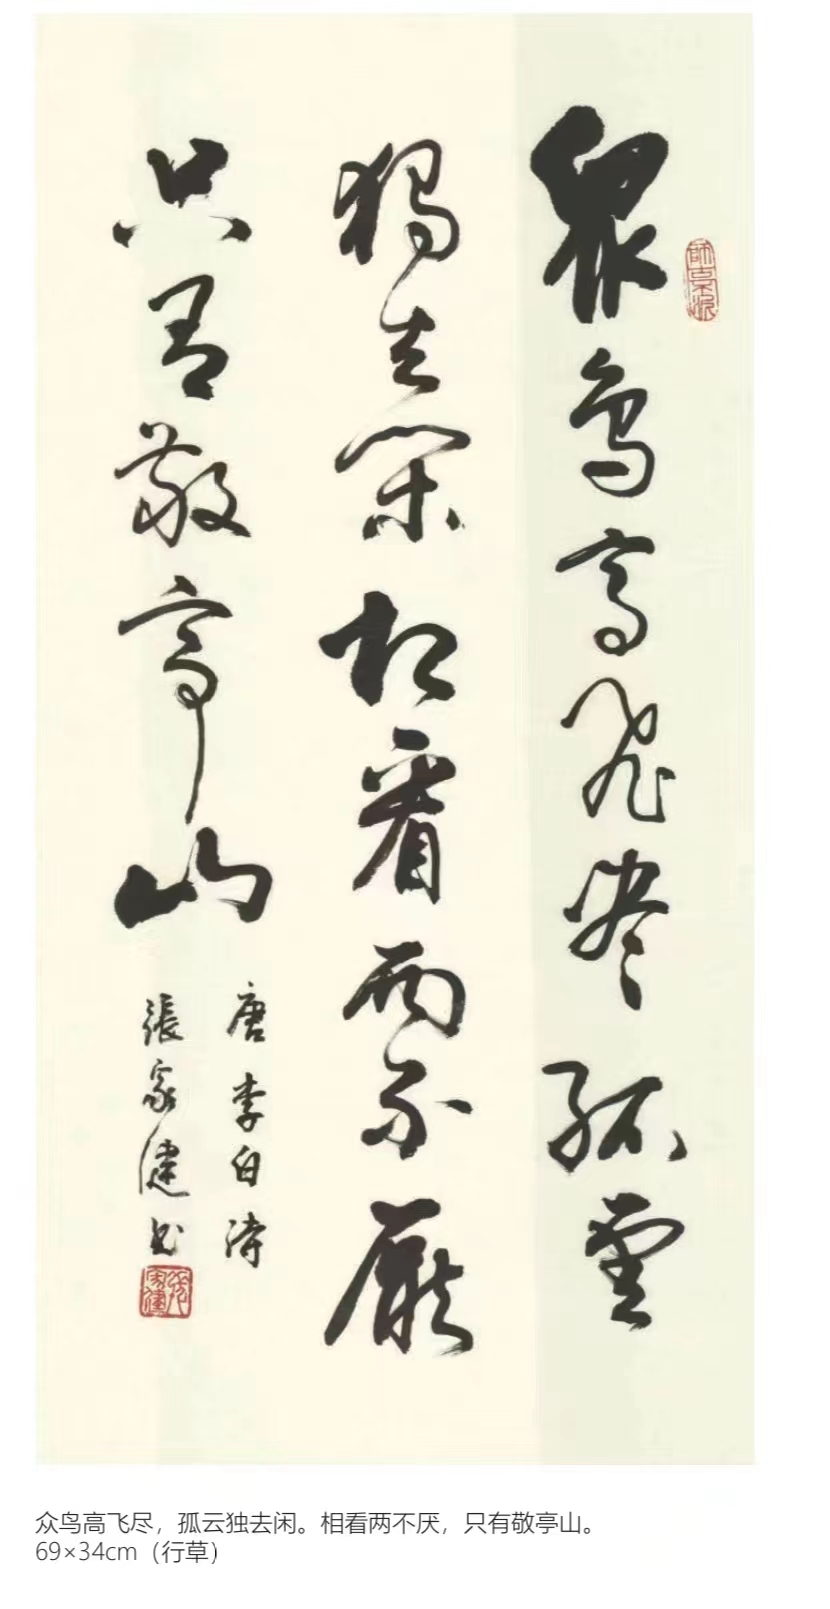 眾鳥高飛盡孤雲
獨去閑相看兩不厭
只有敬亭山
唐李白詩
張家健书
張家健
众鸟高飞尽，孤云独去闲。相看两不厌，只有敬亭山。
69×34cm（行草）